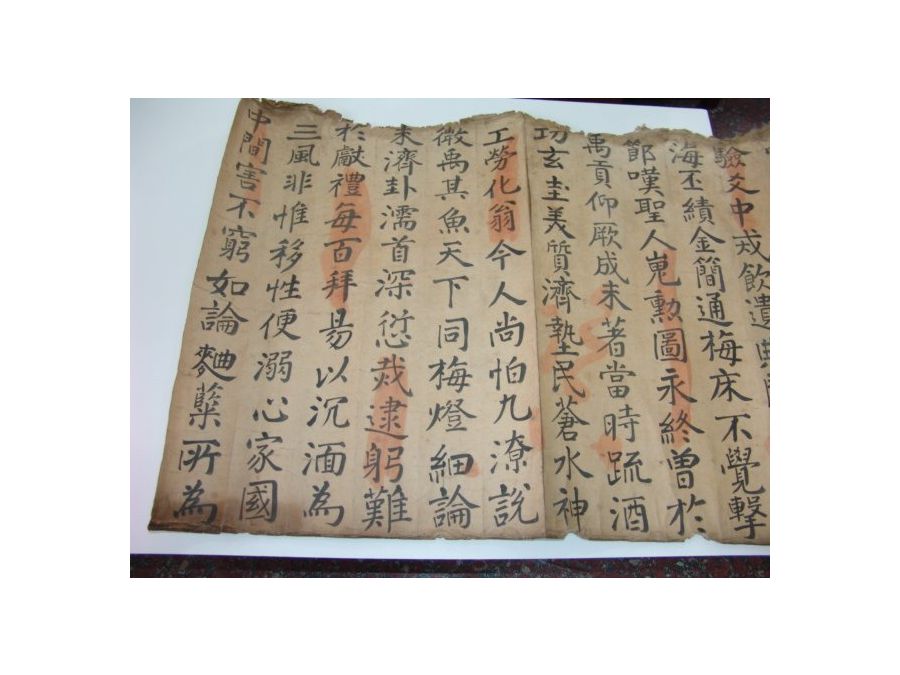 驗爻中戎飲遺典
海丕績金簡通梅床不覺擊
節嘆聖人嵬勲圖永終曾於
禹貢仰厥成未著當時疏酒
功玄圭美質濟墊民蒼水神
工勞化翁今人尚怕九潦說
微禹其魚天下同梅燈細論
未濟卦濡首深愆烖逮躬難
於獻禮每百拜易以沉湎為
三風非惟移性便溺心家國
中間害不窮如論麯蘖所為